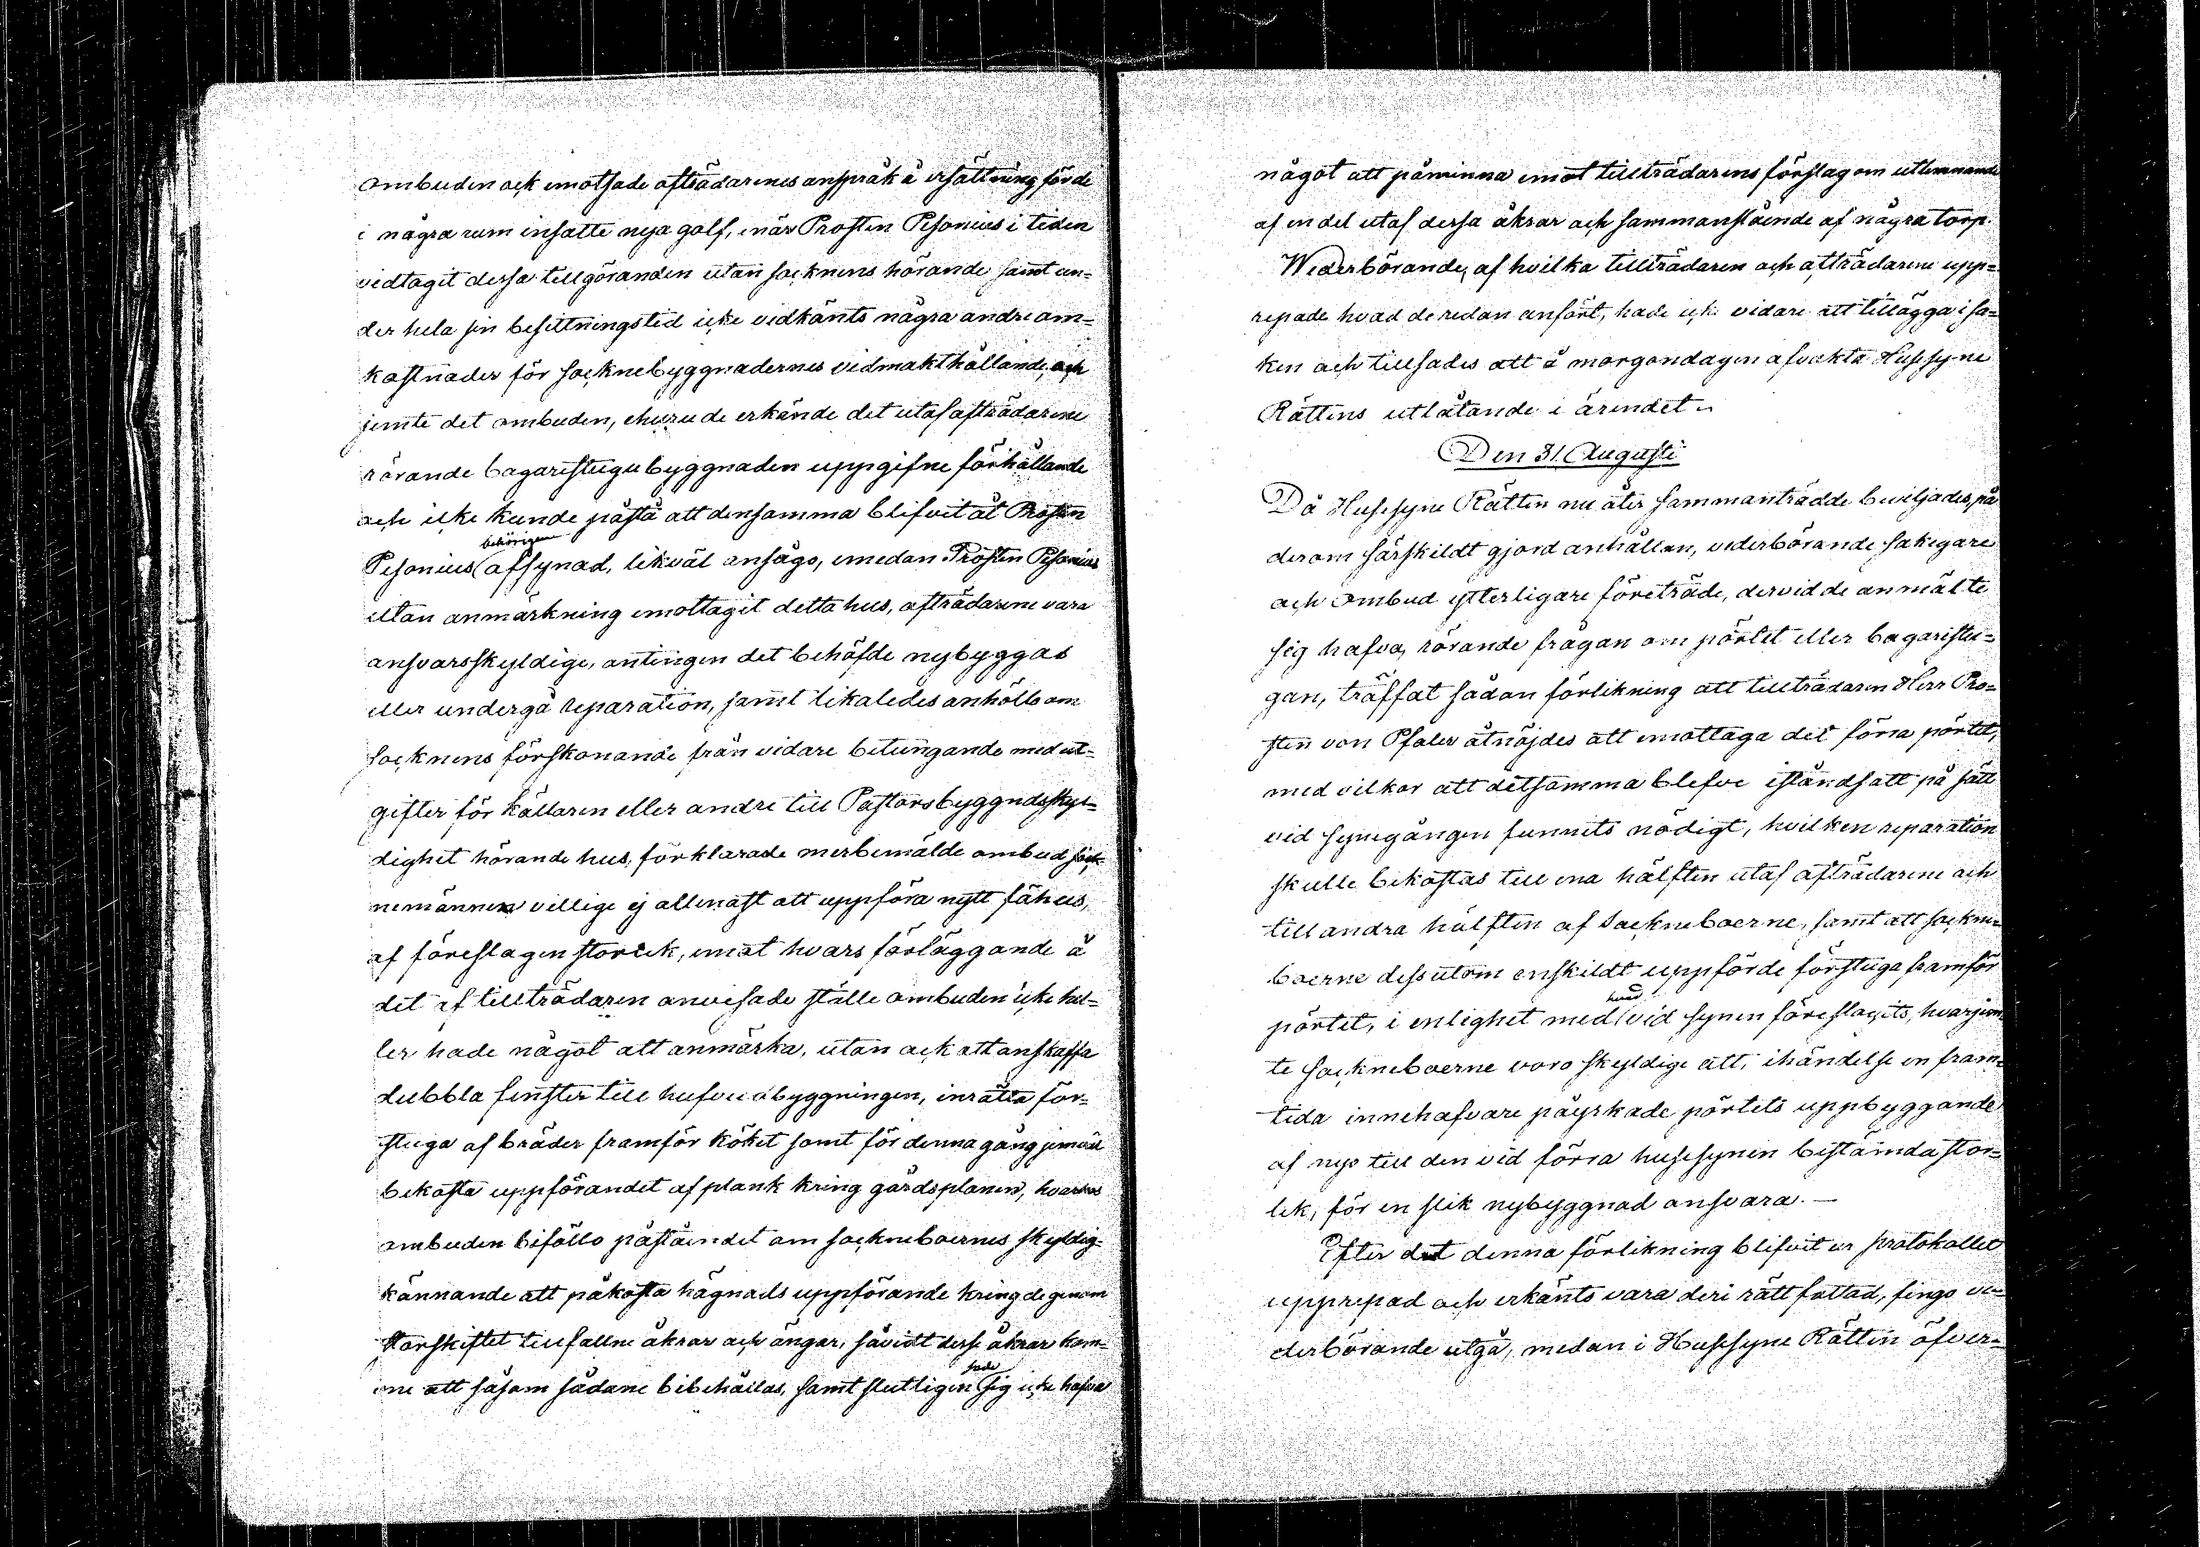 ombuden ock emotsade afträdarenes anspråk å ersättning för de
i några rum insatte nya golf, enär Prosten Pesonius i tiden
vidtagit dessa tillgöranden utan socknens hörande samt un-
der hela sin besittningstid icke vidkänts några andre om-
kostnader för socknebyggnadernes vidmakthållande, och
jemte det ombuden, ehuru de erkände det utaf afträdarene
rörande bagarestugubyggnaden uppgifne förhållande
och icke kunde påstå att densamma blifvit åt Prosten
behörigen
Pesonius afsynad, likväl ansågo, emedan Prosten Pesonius
utan anmärkning emottagit detta hus, afträdarene vara
ansvarsskyldige, antingen det behöfde nybyggas
eller undergå reparation, samt likaledes anhöllo om
socknens förskonande från vidare betungande med ut-
gifter för källaren eller andre till Pastorsbyggndsskyl-
dighet hörande hus, förklarade merbemälde ombud sock-
nemännen villige ej allenast att uppföra nytt fähus,
af föreslagen storlek, emot hvars förläggande å
det af tillträdaren anvisade ställe ombuden icke hel-
ler hade något att anmärka, utan ock att anskaffa
dubbla fenster till hufvudbyggningen, inrätta för-
stuga af bräder framför köket samt för denna gång jemväl
bekosta uppförandet af plank kring gårdsplanen, hvarhos
ombuden biföllo påståendet om socknboernes skyldig-
kännande att påkosta hägnads uppförande kring de genom
Storskiftet tillfallne åkrar och ängar, såvidt desse åkrar kom-
sade
me att såsom sådane bibehållas, samt slutligen sig icke hafva
något att påminna emot tillträdarens förslag om utlemnande
af en del utaf dessa åkrar och sammanstående af några torp.
Wederbörande, af hvilka tillträdaren och afträdarene upp-
repade hvad de redan anfört, hade icke vidare att tillägga i sa-
ken och tillsades att å morgondagen afvakta Husesyne
Rättens utlåtande i ärendet.
Den 31. Augusti
Då Husesyne Rätten nu åter sammanträdde beviljades, på
derom särskildt gjord anhållan, vederbörande sakegare
och ombud ytterligare företräde, dervid de anmälte
sig hafva, rörande frågan om pörtet eller bagarestu-
gan, träffat sådan förlikning att tillträdaren Herr Pro-
sten von Pfaler åtnöjdes att emottaga det förra pörtet,
med vilkor att detsamma blefve iståndsatt på sätt
vid synegången funnits nödigt, hvilken reparation
skulle bekostas till ena hälften utaf afträdarene och
till andra hälften af Sockneboerne, samt att sockne-
boerne dessutom enskildt uppförde förstuga framför
hvad
pörtet, i enlighet med vid synen föreslagits, hvarjem-
te sockneboerne voro skyldige att, ihändelse en fram-
tida innehafvare påyrkade pörtets uppbyggande
af nyo till den vid förra husesynen bestämda stor-
lek, för en slik nybyggnad ansvara. —
Efter det denna förlikning blifvit ur protokollet
upprepad och erkänts vara deri rätt fattad, fingo ve-
derbörande utgå, medan i Husesyne Rätten öfver-